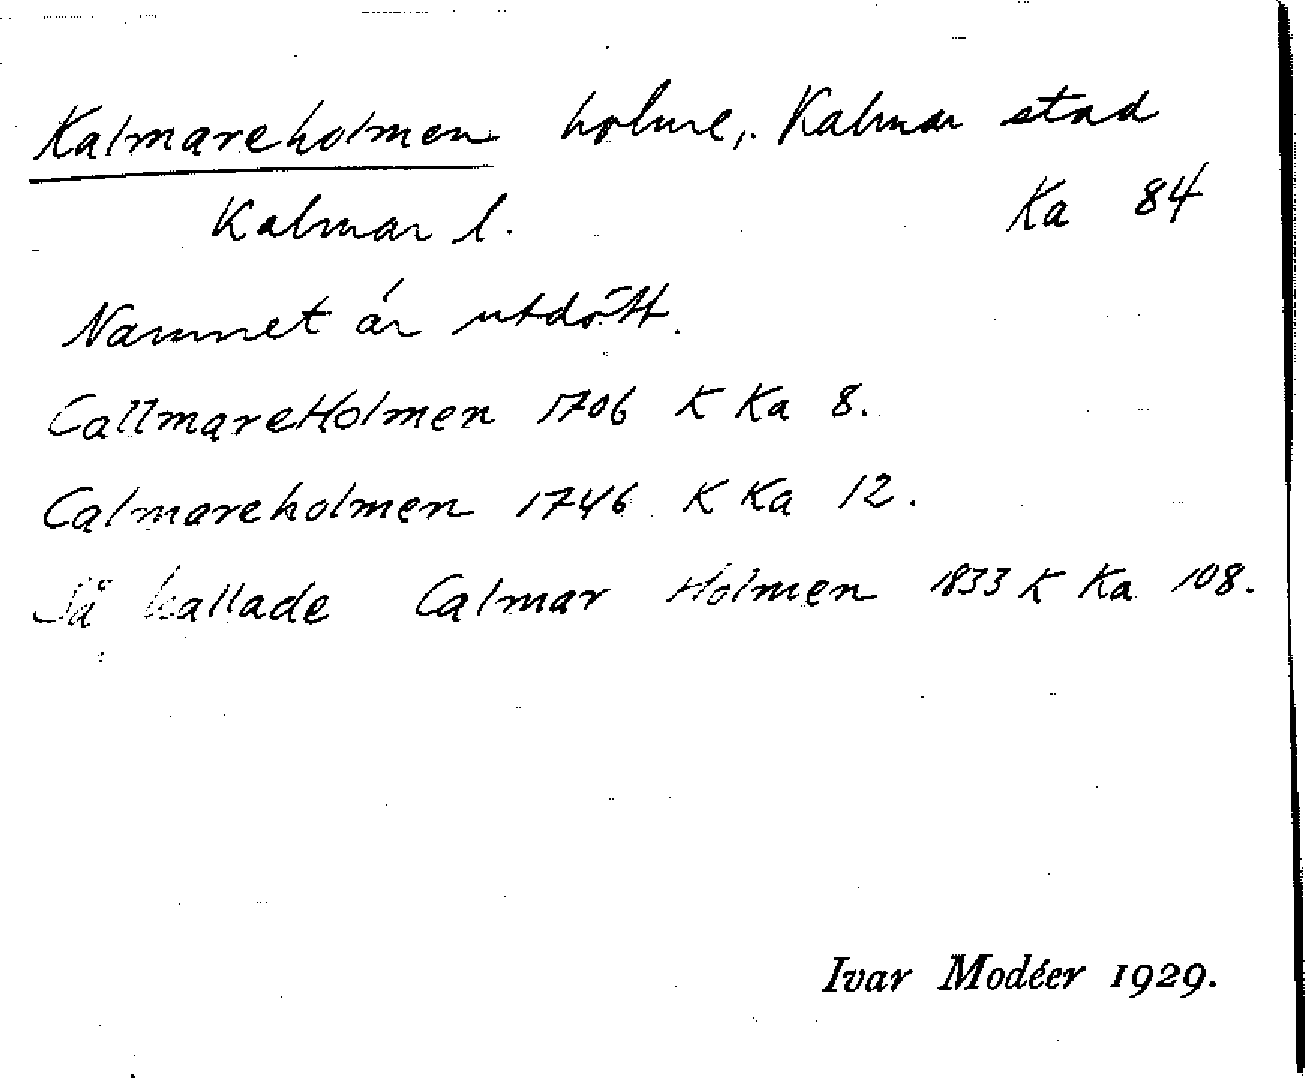 Kalmareholmen holme, Kalmar stad
Kalmar l. Ka 84
Namnet är utdött.
CallmareHolmen 1706 K Ka 8.
Calmareholmen 1746 K Ka 12.
Så kallade Calmar Holmen 1833 K Ka 108.
Ivar Modéer 1929.